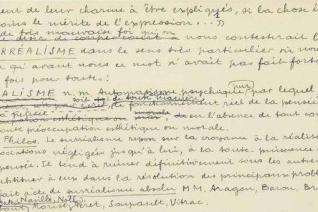 de leur charme à être expliqués, si la chose é
le mérite de l'expression...
de très mauvaise foi
nous contesterait l
RRÉALISME dans le sens très particulier où nou
qu'avant nous ce mot n'avait pas fait fortu
fois pour toutes:
ALISME n.m. Automatisme psychique par lequel
fonctionnement réel de la pensée
en l'absence de tout
préoccupation esthétique ou morale.
Philos. Le surréalisme repose sur la croyance à la réalité
négligées jusqu'à lui, à la toute-puissance
pensée. Il tend à ruiner définitivement tous les autres
substituer à eux dans la résolution des principaux probl
fait acte de surréalisme absolu MM. Aragon, Baron, Br
Naville, Noll,
Péret, Soupault, Vitrac.